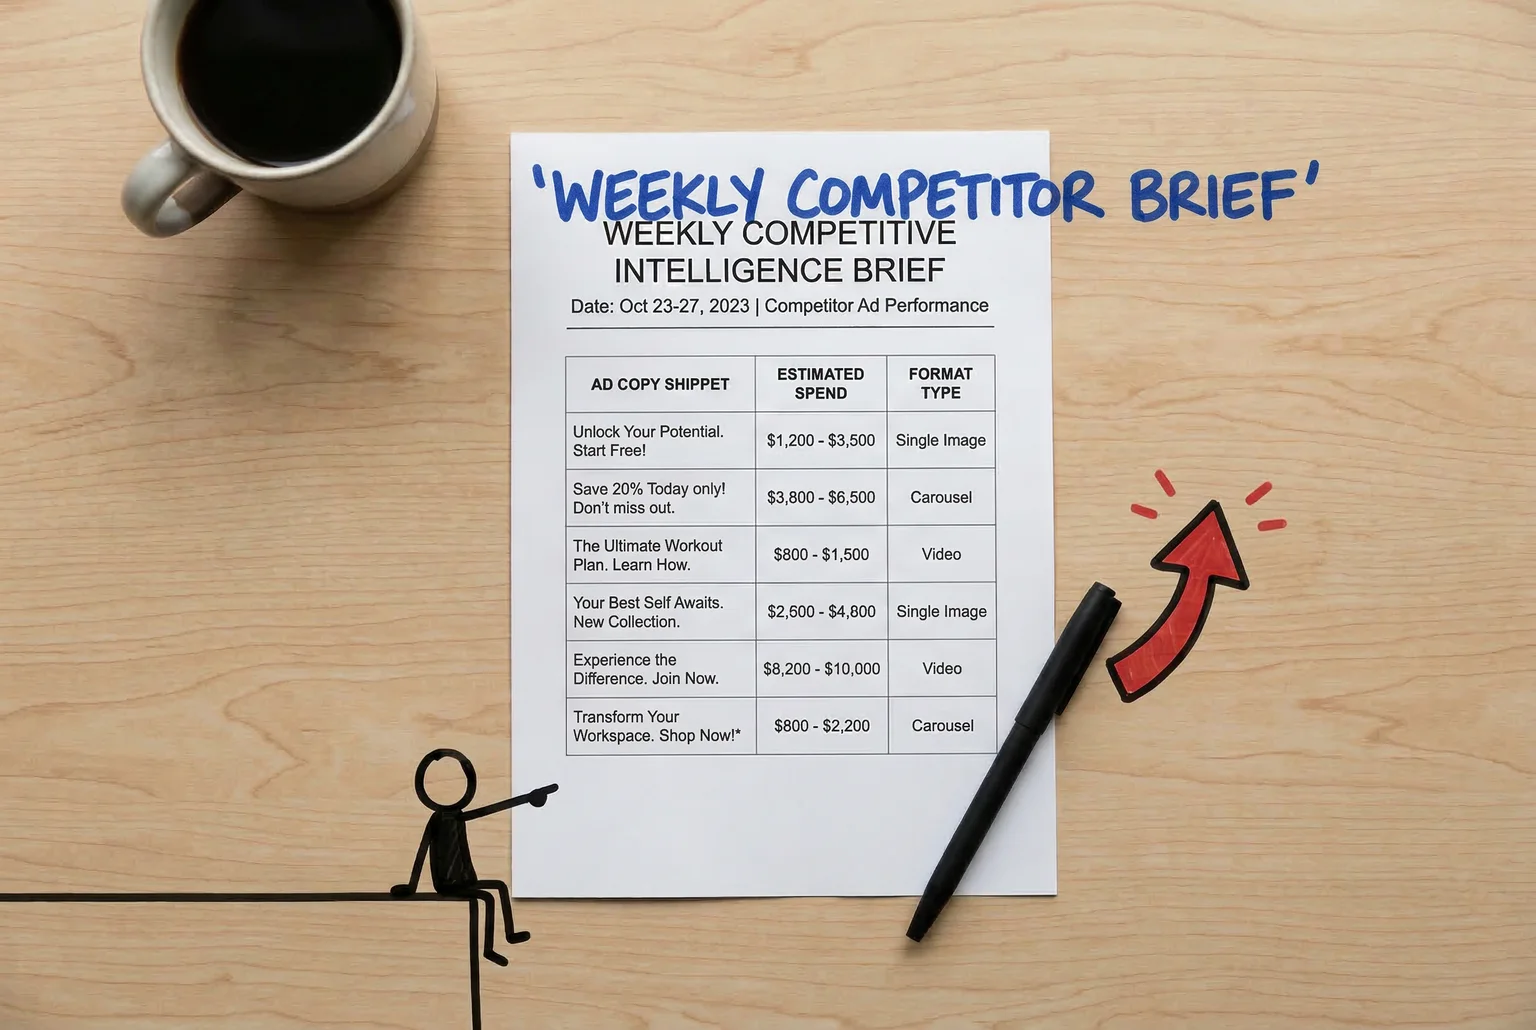 'WEEKLY COMPETITOR BRIEF'
WEEKLY COMPETITIVE
INTELLIGENCE BRIEF
Date: Oct 23-27, 2023 | Competitor Ad Performance
AD COPY SHIPPET
ESTIMATED
SPEND
FORMAT
TYPE
Unlock Your Potential.
Start Free!
$1,200 - $3,500
Single Image
Save 20% Today only!
Don't miss out.
$3,800 - $6,500
Carousel
The Ultimate Workout
Plan. Learn How.
$800 - $1,500
Video
Your Best Self Awaits.
New Collection.
$2,600 - $4,800
Single Image
Experience the
Difference. Join Now.
$8,200 - $10,000
Video
Transform Your
Workspace. Shop Now!*
$800 - $2,200
Carousel